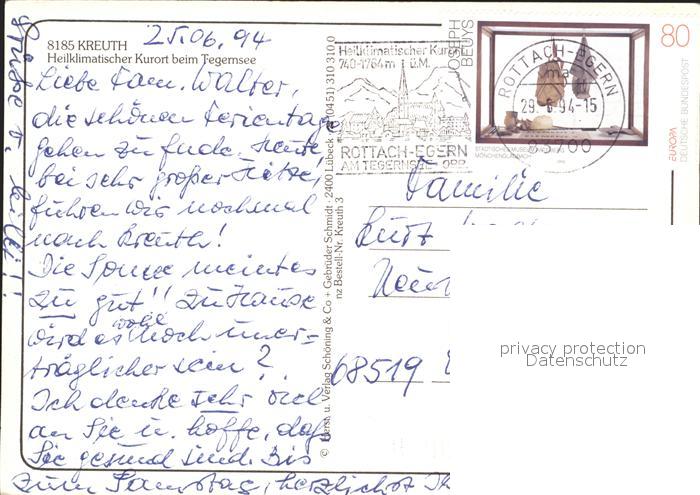 25.06.94
8185 KREUTH
Heilklimatischer Kurort beim Tegernsee
Liebe Fam. Walter,
die schönen Ferientage
gehen zu Ende. Heute
bei sehr großer Hitze,
führen wir nochmal
nach Kreuth!
Die Sonne meint es
zu gut!! Zu Hause
wird es wohl noch uner=
träglicher sein?
Ich denke sehr viel
an Sie u. hoffe, daß
Sie gesund sind. Bis
zum Samstag, herzlichst
Grüße v.
© Herst. u. Verlag Schöning & Co + Gebrüder Schmidt · 2400 Lübeck · (0451) 31 03 10
nz Bestell-Nr. Kreuth 3
Heilklimatischer Kurort
740-1764 m ü.M.
ROTTACH-EGERN
AM TEGERNSEE OBB.
JOSEPH
BEUYS
80
EUROPA
DEUTSCHE BUNDESPOST
ROTTACH-EGERN
ma
29.-6.94-15
83700
MÖNCHENGLADBACH
Familie
Kurt
68519
privacy protection
Datenschutz